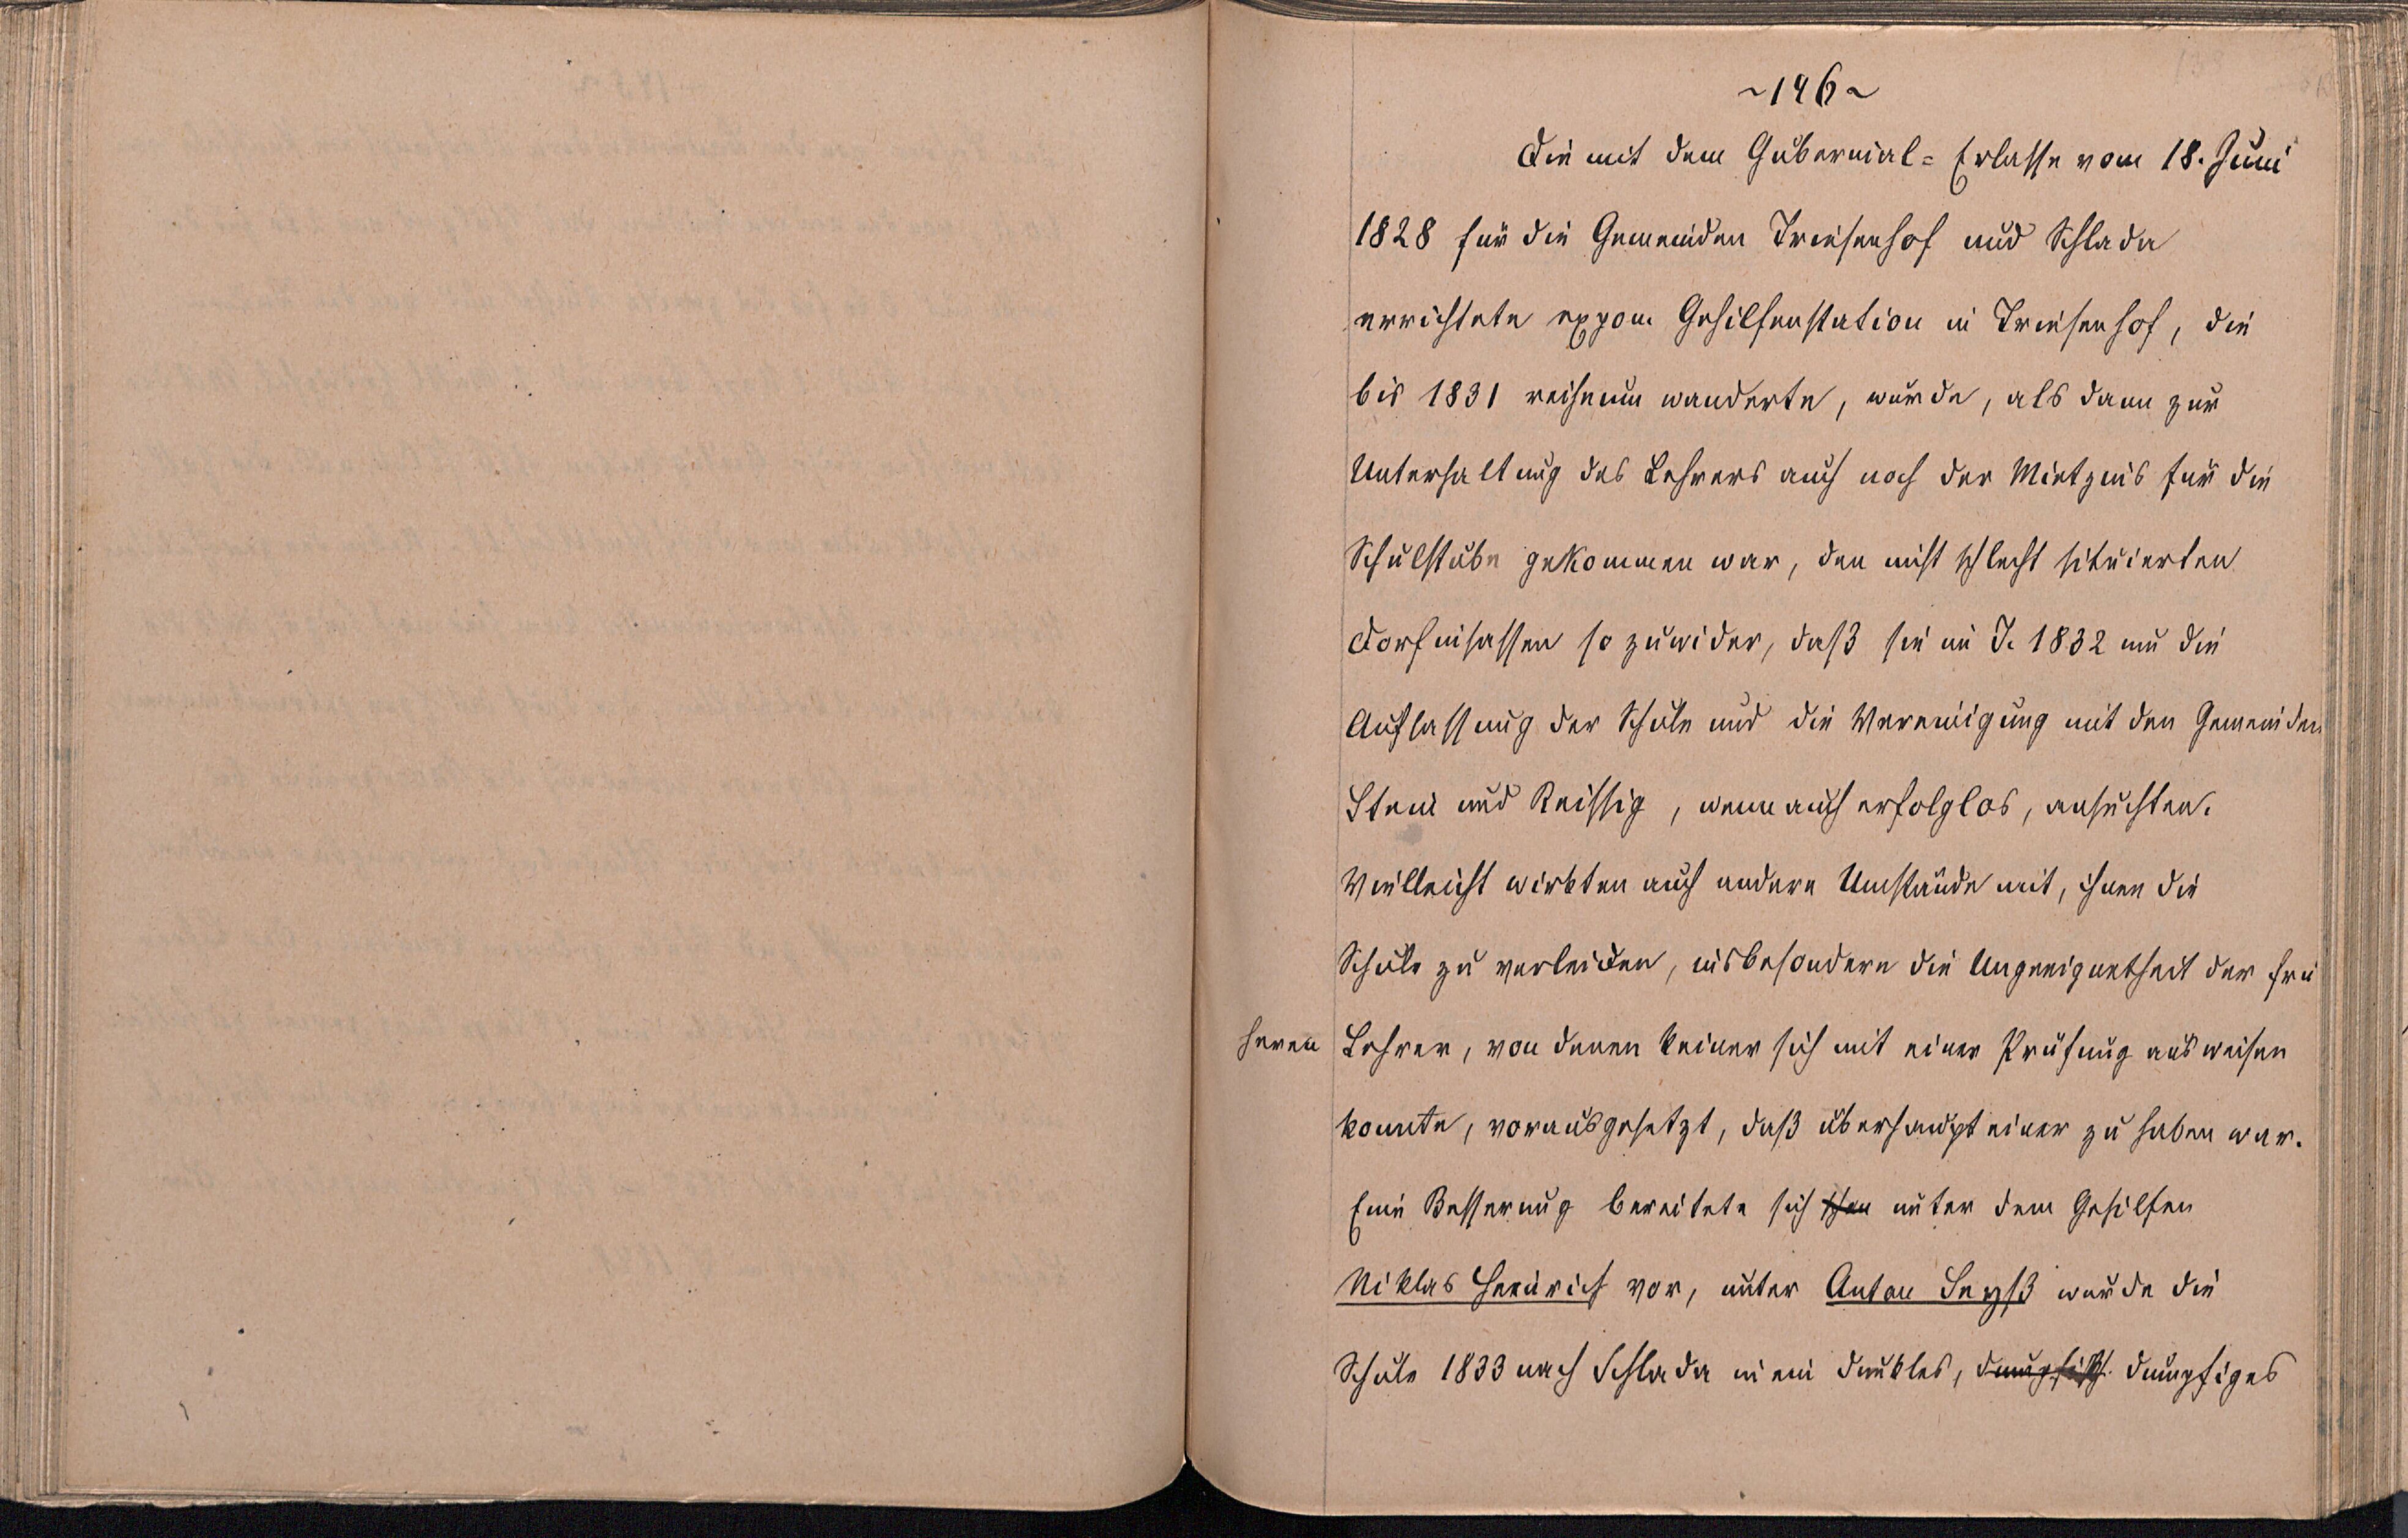 ~196~
Die mit dem Gubernial-Erlasse vom 18. Juni
1828 für die Gemeinden Triesenhof und Schlada
errichtete expon Gehilfenstation in Triesenhof, die
bis 1831 reiheum wanderte, wurde, als dann zur
Unterhaltung des Lehrers auch noch der Mietzins für die
Schulstube gekommen war, den meist schlecht situierten
Dorfinsassen so zuwider, daß sie im J. 1832 um die
Auflassung der Schule und die Vereinigung mit den Gemeinden
Stein und Reissig, wenn auch erfolglos, ansuchten.
Vielleicht wirkten auch andere Umstände mit, ihnen die
Schule zu verleiden, insbesondere die Ungeeignetheit der frü
heren Lehrer, von denen keiner sich mit einer Prüfung ausweisen
konnte, vorausgesetzt, daß überhaupt einer zu haben war.
Eine Besserung bereitete sich schon unter dem Gehilfen
Niklas Heinrich vor, unter Anton wurde die
Schule 1833 nach Schlada in ein dunkles, dumpfiges